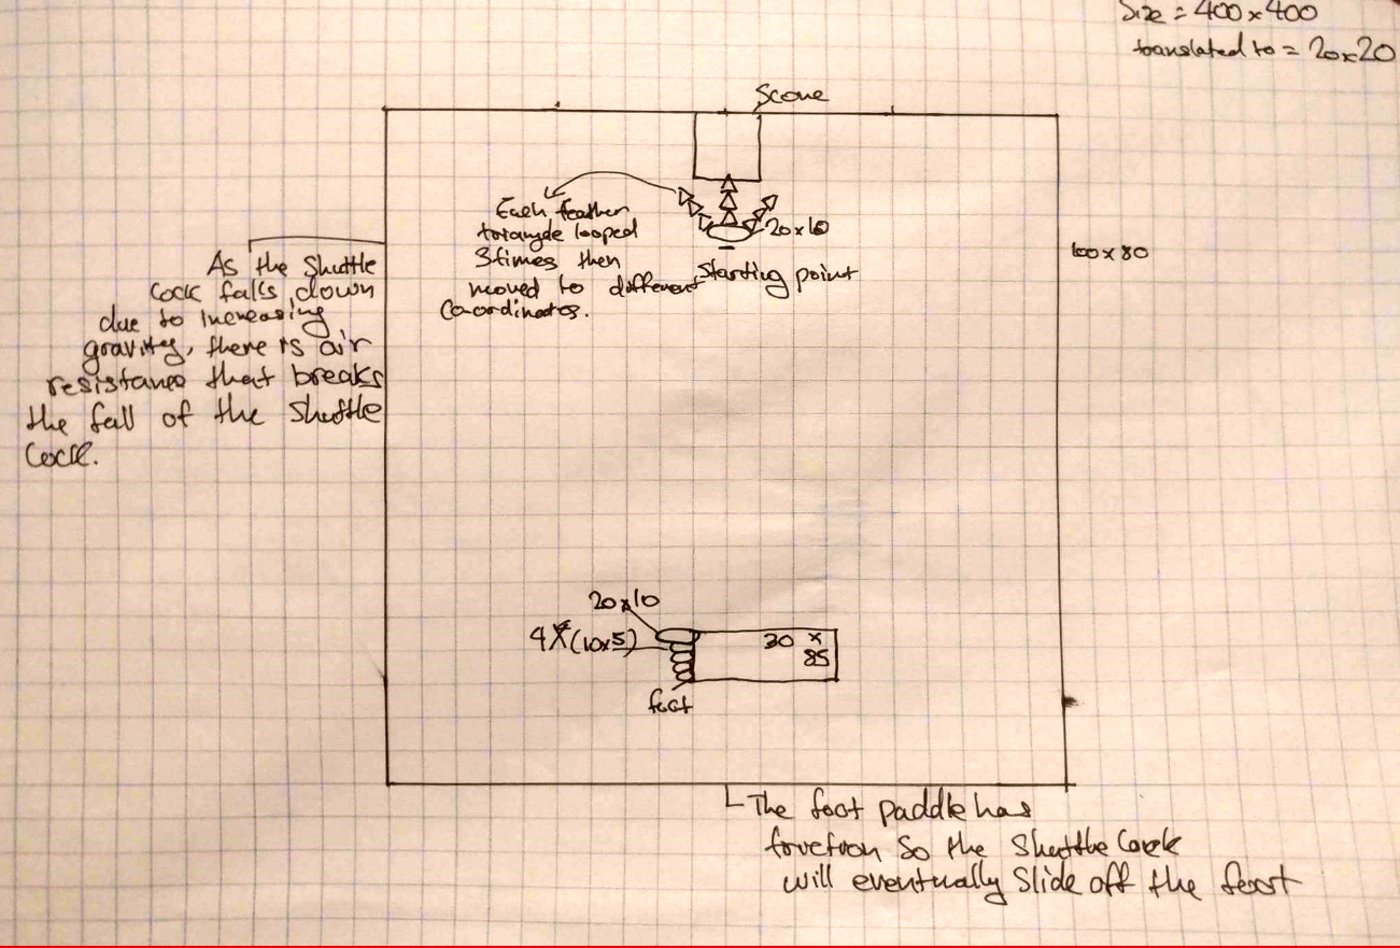 Size = 400 x 400
translated to = 20x20
Score
Each feather
looped
3 times then
moved to different
Co-ordinates.
20 x 10
Starting point
100 x 80
As the Shuttle
Cock falls down
due to increasing
gravity, there is air
resistance that breaks
the fall of the Shuttle
Cock.
20 x 10
4 X (10x5)
30 x
85
foot
The foot paddle has
so the Shuttle Cock
will eventually Slide off the foot